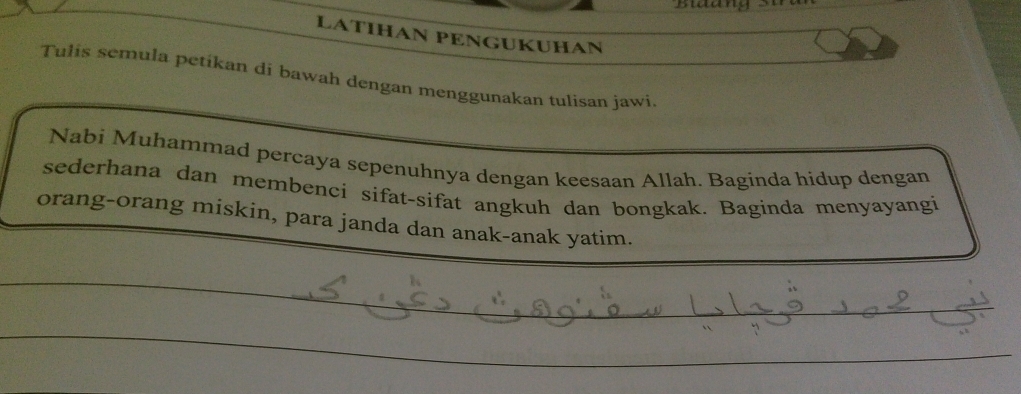 Bidang Sirah
LATIHAN PENGUKUHAN
Tulis semula petikan di bawah dengan menggunakan tulisan jawi.
Nabi Muhammad percaya sepenuhnya dengan keesaan Allah. Baginda hidup dengan
sederhana dan membenci sifat-sifat angkuh dan bongkak. Baginda menyayangi
orang-orang miskin, para janda dan anak-anak yatim.
نبي محمد ڤرچايا سڤنوهڽ دڠن ک